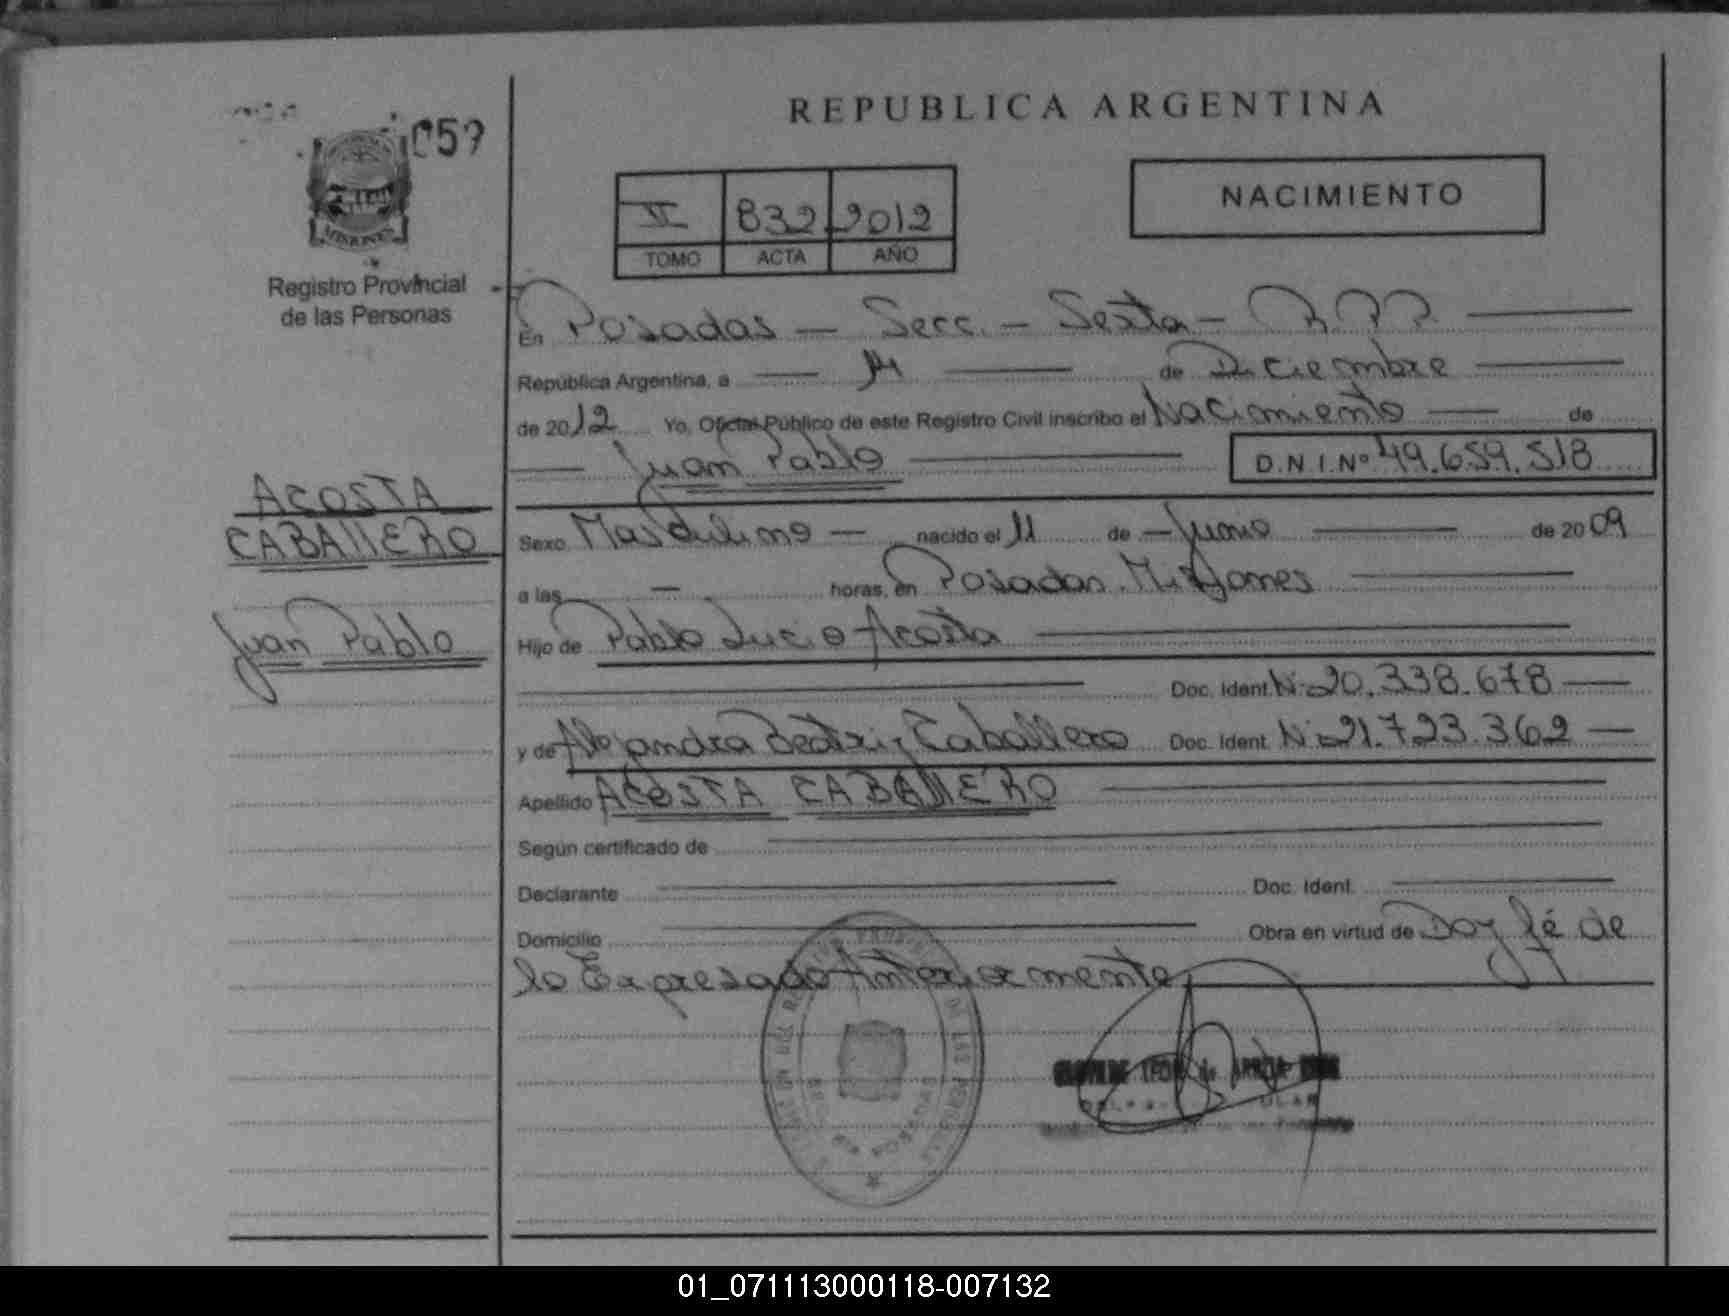 REPUBLICA ARGENTINA
MISIONES
Registro Provincial
de las Personas
VI 832 2012
TOMO ACTA AÑO
NACIMIENTO
En Posadas — Secc. — Sexta — R.P.P.
República Argentina, a de Diciembre
de 2012 Yo, Oficial Público de este Registro Civil inscribo el Nacimiento de
Juan Pablo D.N.I.Nº 49.659.518
ACOSTA
CABALLERO
Juan Pablo
Sexo Masculino — nacido el 11 de — Junio de 2009
a las — horas, en Posadas. Misiones
Hijo de Pablo Lucio Acosta
Doc. Ident. Nº 20.338.678
y de Alejandra Beatriz Caballero Doc. Ident. Nº 21.723.362
Apellido ACOSTA CABALLERO
Según certificado de
Declarante Doc. Ident.
Domicilio Obra en virtud de Doy fé de
lo Expresado Anteriormente
01_071113000118-007132